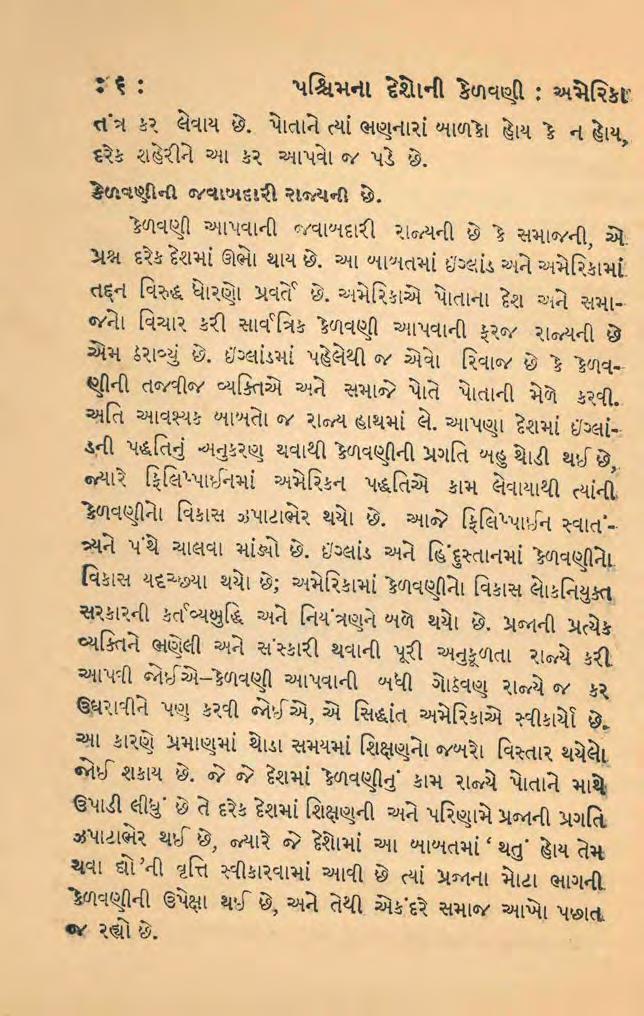 : ૬ : પશ્ચિમના દેશોની કેળવણી : અમેરિકા
તંત્ર કર લેવાય છે. પોતાને ત્યાં ભણનારાં બાળકો હોય કે ન હોય,
દરેક શહેરીને આ કર આપવો જ પડે છે.
કેળવણીની જવાબદારી રાજ્યની છે.
કેળવણી આપવાની જવાબદારી રાજ્યની છે કે સમાજની, એ
પ્રશ્ન દરેક દેશમાં ઊભો થાય છે. આ બાબતમાં ઇંગ્લાંડ અને અમેરિકામાં
તદ્દન વિરુદ્ધ ધોરણો પ્રવર્તે છે. અમેરિકાએ પોતાના દેશ અને સમા-
જનો વિચાર કરી સાર્વત્રિક કેળવણી આપવાની ફરજ રાજ્યની છે
એમ ઠરાવ્યું છે. ઇંગ્લાંડમાં પહેલેથી જ એવો રિવાજ છે કે કેળવ-
ણીની તજવીજ વ્યક્તિએ અને સમાજે પોતે પોતાની મેળે કરવી.
અતિ આવશ્યક બાબતો જ રાજ્ય હાથમાં લે. આપણા દેશમાં ઇંગ્લાં-
ડની પદ્ધતિનું અનુકરણ થવાથી કેળવણીની પ્રગતિ બહુ થોડી થઈ છે,
જ્યારે ફિલિપ્પાઈનમાં અમેરિકન પદ્ધતિએ કામ લેવાયાથી ત્યાંની
કેળવણીનો વિકાસ ઝપાટાભેર થયો છે. આજે ફિલિપ્પાઈન સ્વાતં-
ત્ર્યને પંથે ચાલવા માંડ્યો છે. ઇંગ્લાંડ અને હિંદુસ્તાનમાં કેળવણીનો
વિકાસ યદૃચ્છયા થયો છે; અમેરિકામાં કેળવણીનો વિકાસ લોકનિયુક્ત
સરકારની કર્તવ્યબુદ્ધિ અને નિયંત્રણને બળે થયો છે. પ્રજાની પ્રત્યેક
વ્યક્તિને ભણેલી અને સંસ્કારી થવાની પૂરી અનુકૂળતા રાજ્યે કરી
આપવી જોઈએ–કેળવણી આપવાની બધી ગોઠવણ રાજ્યે જ કર
ઉઘરાવીને પણ કરવી જોઈએ, એ સિદ્ધાંત અમેરિકાએ સ્વીકાર્યો છે.
આ કારણે પ્રમાણમાં થોડા સમયમાં શિક્ષણનો જબરો વિસ્તાર થયેલો
જોઈ શકાય છે. જે જે દેશમાં કેળવણીનું કામ રાજ્યે પોતાને માથે
ઉપાડી લીધું છે તે દરેક દેશમાં શિક્ષણની અને પરિણામે પ્રજાની પ્રગતિ
ઝપાટાભેર થઈ છે, જ્યારે જે દેશોમાં આ બાબતમાં ‘ થતું હોય તેમ
થવા દ્યો ’ની વૃત્તિ સ્વીકારવામાં આવી છે ત્યાં પ્રજાના મોટા ભાગની
કેળવણીની ઉપેક્ષા થઈ છે, અને તેથી એકંદરે સમાજ આખો પછાત
જ રહ્યો છે.